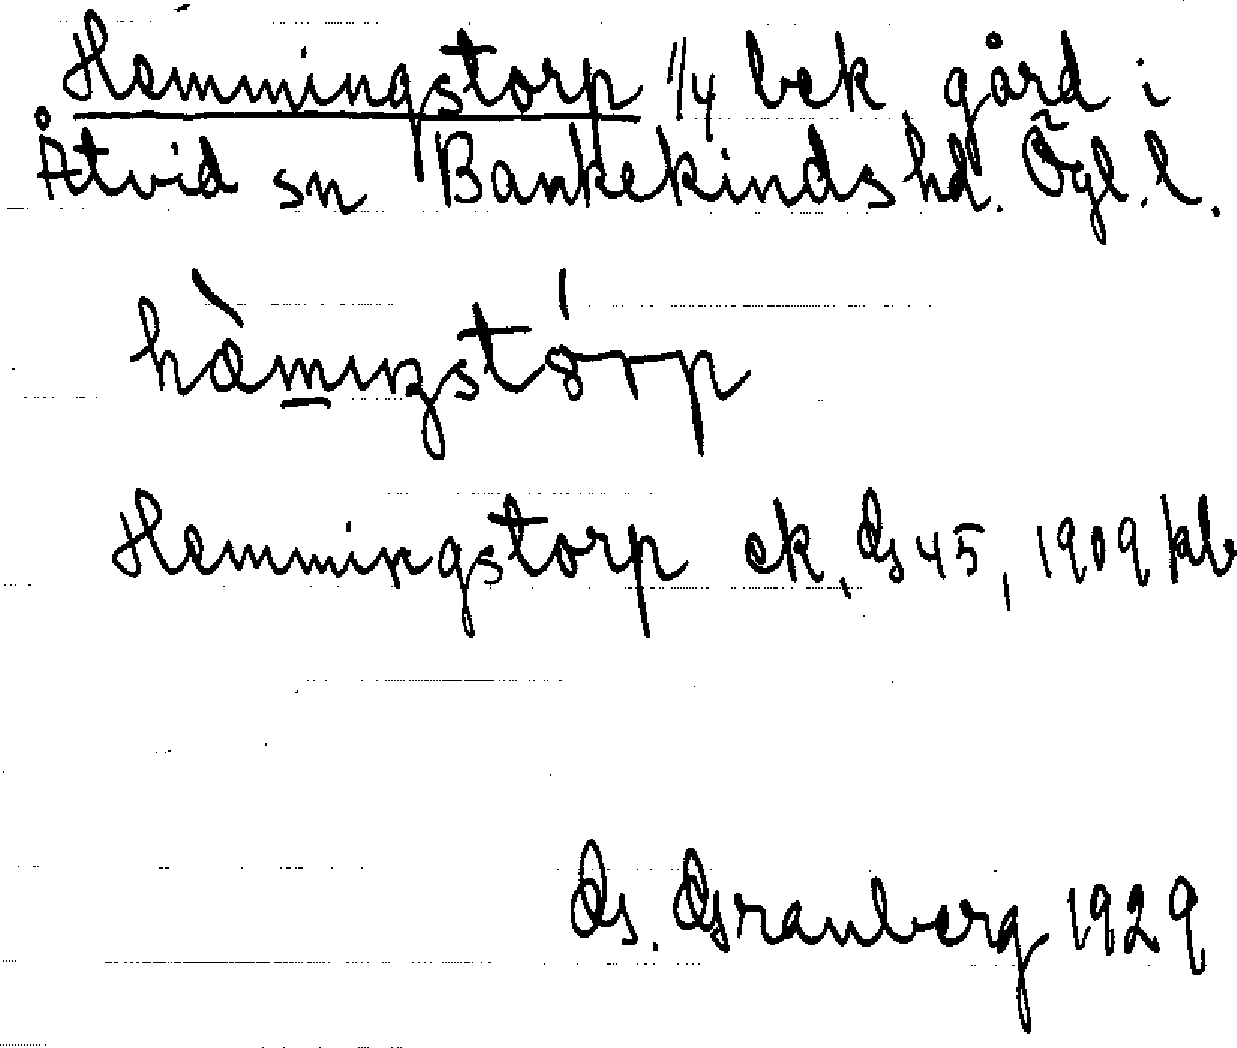 Hemmingstorp 1/4 bek gård i
Åtvid sn Bankekinds hd. Ögl. l.
Hemmingstorp ek, Gs 45, 1909 kb
G. Granberg 1929